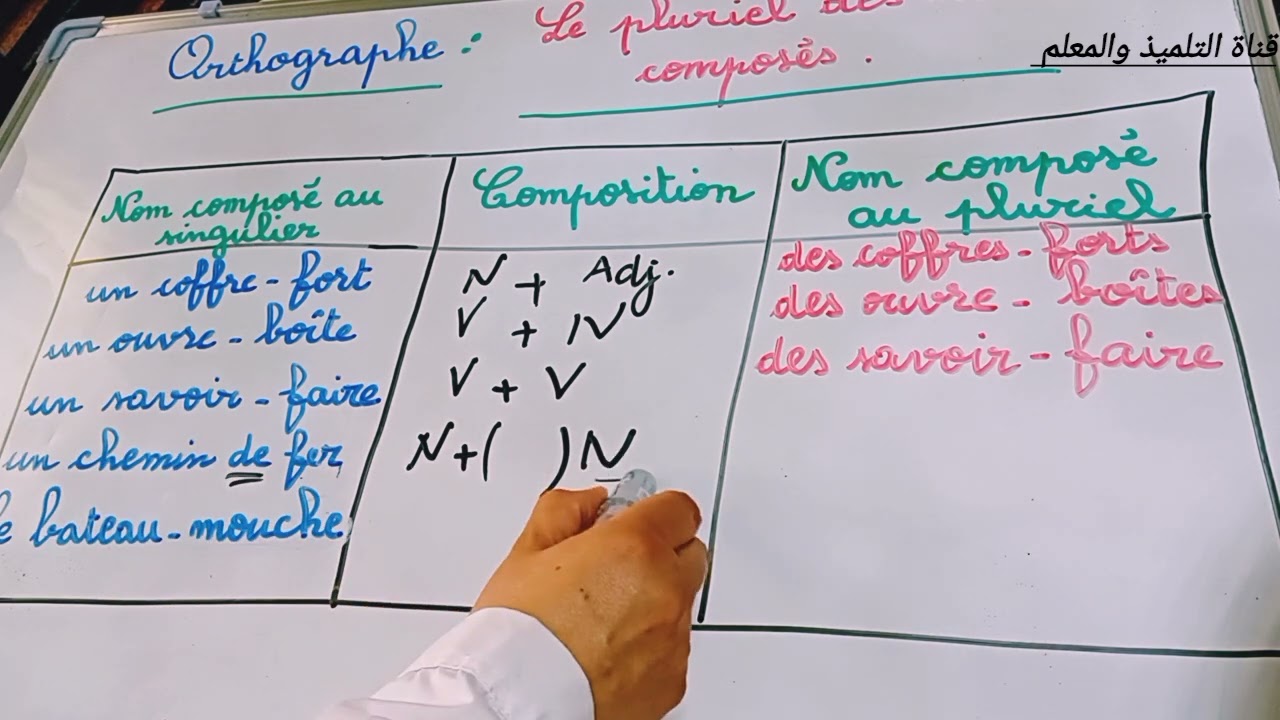 Orthographe : Le pluriel des
composés .
قناة التلميذ والمعلم
Nom composé au singulier
Composition
Nom composé au pluriel
un coffre-fort N + Adj. des coffres-forts
un ouvre-boîte V + N des ouvre-boîtes
un savoir-faire V + V des savoir-faire
un chemin de fer N+( )N
bateau-mouche